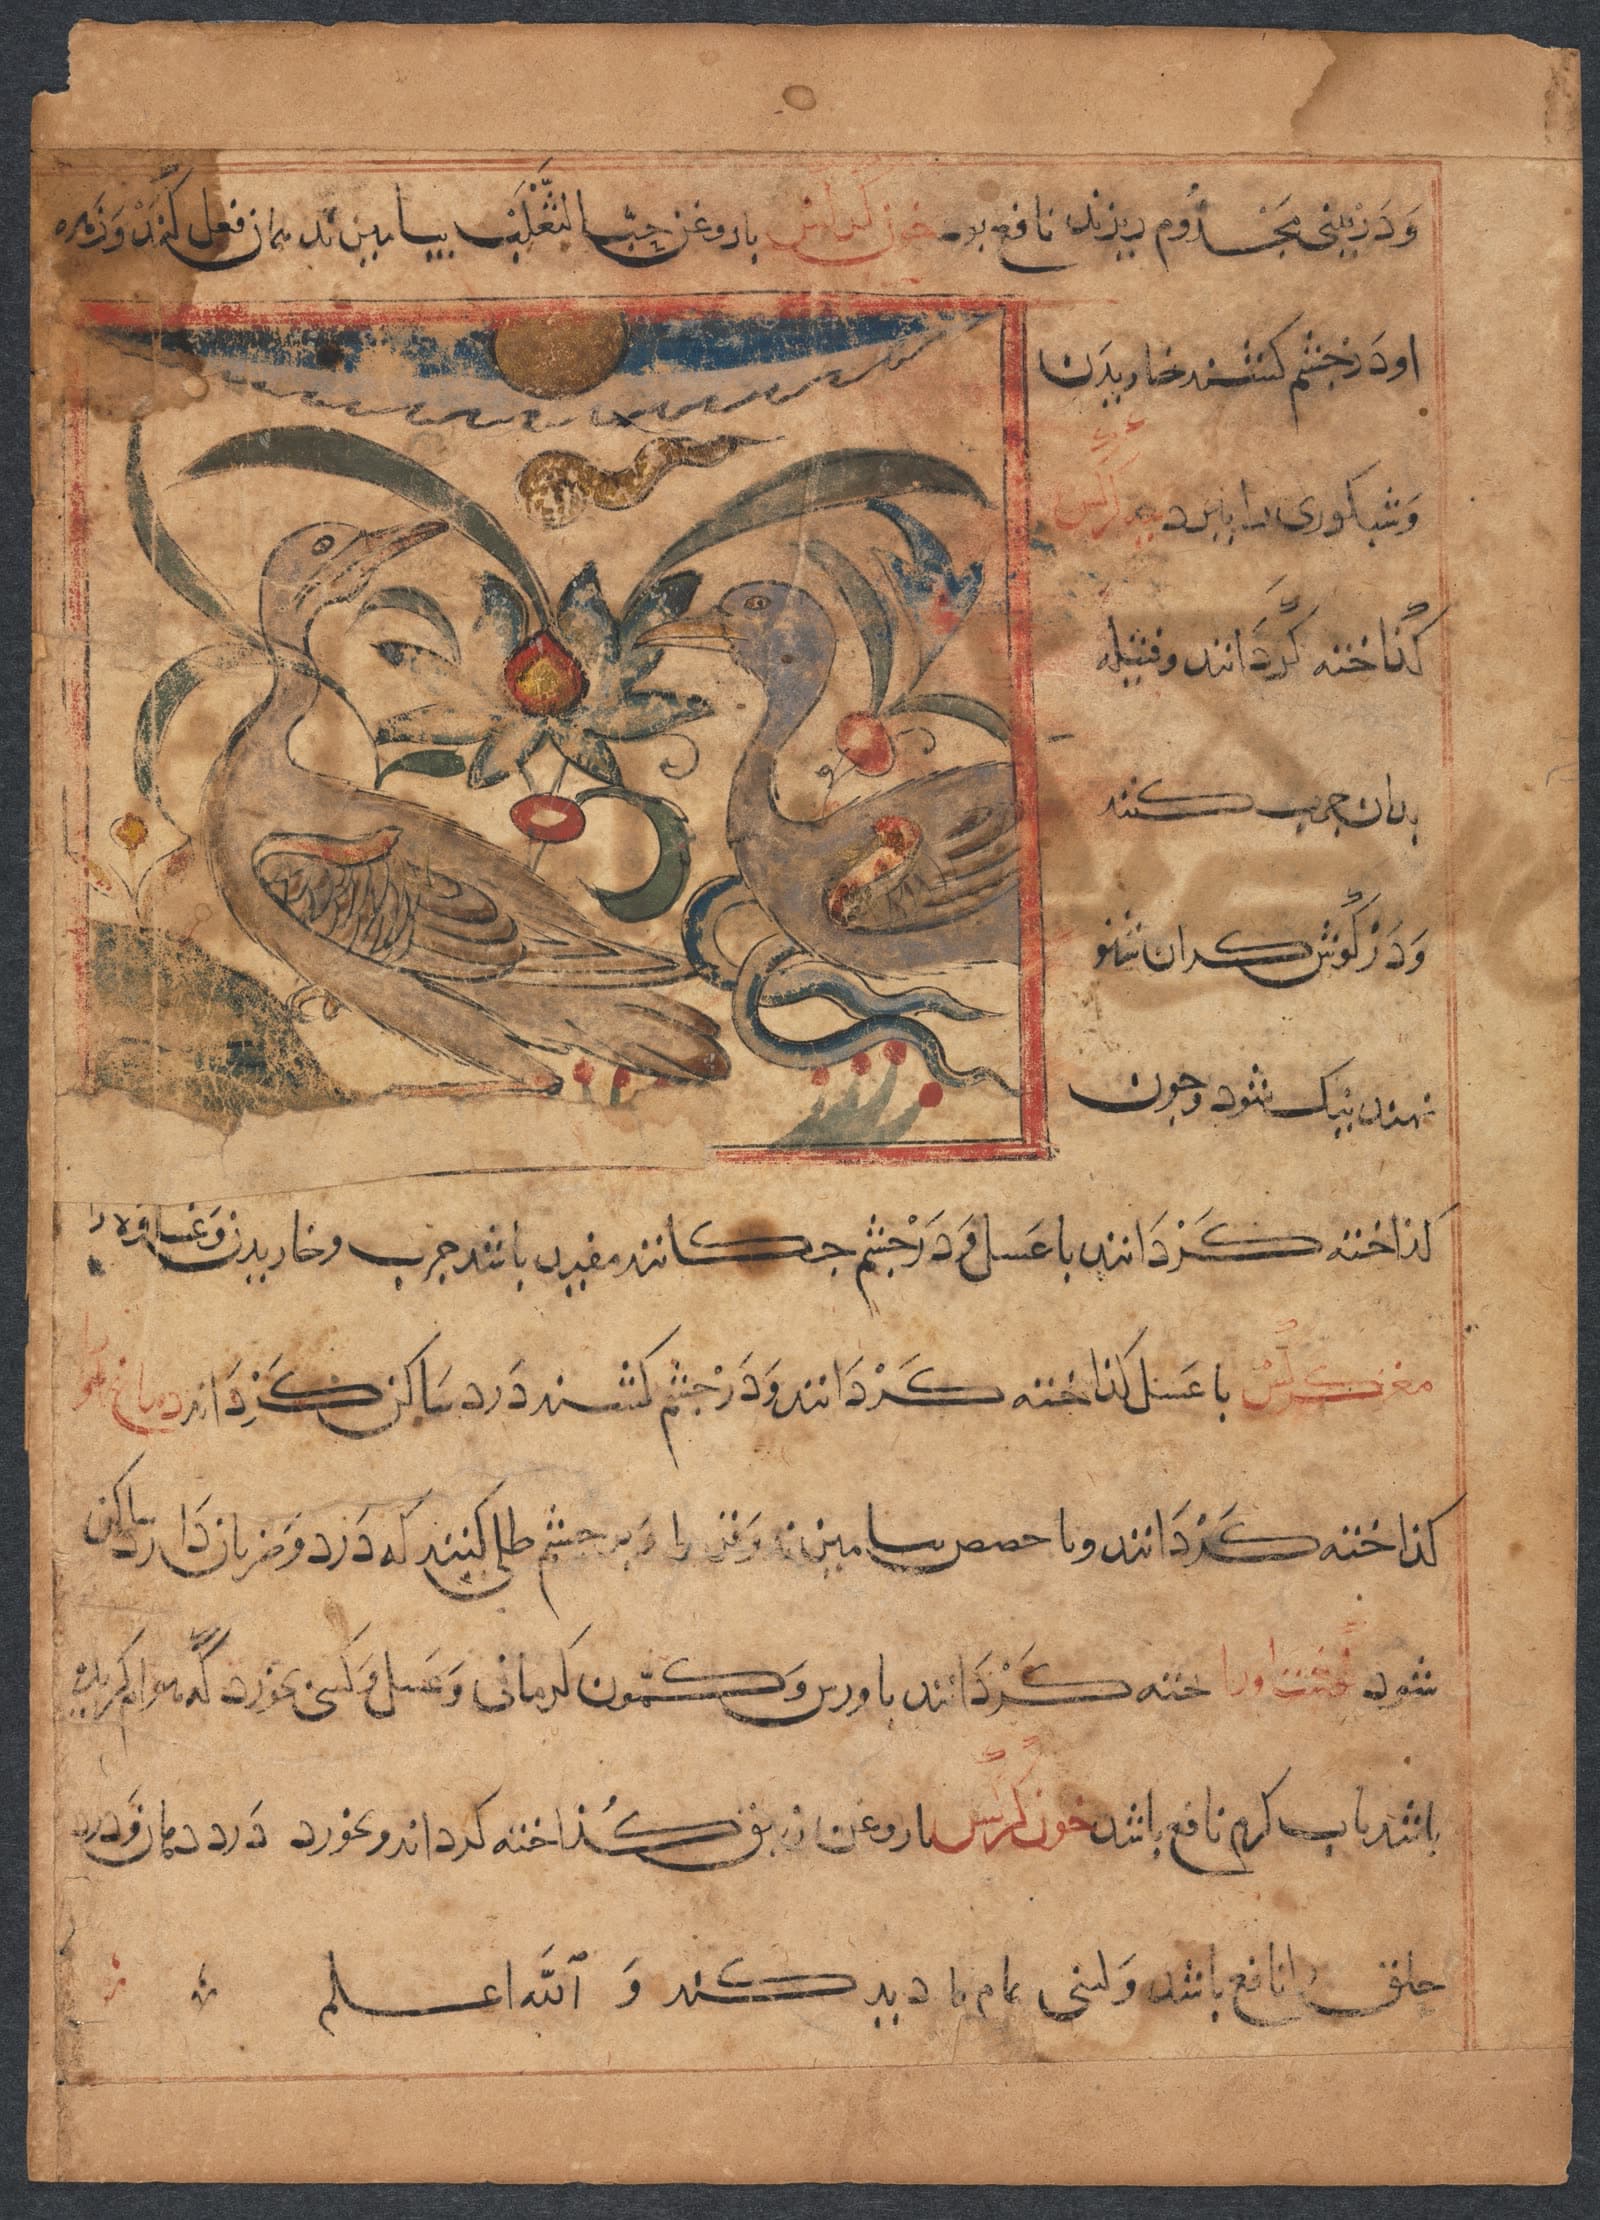 وَدَرْبینی مَجْذُوم ریزند نافع بود خون کراش بادوغن حبّ الثَّعْلَب بیامیزند همان فعل کند وَزَهره
او دَرْجشم کشند خاریدن
وَشبکوری را ببرد پیه کرکس
کذاخته کَردَانند وفتیله
بدان جرب کنند
وَدَرْکوش کران شنو
نهند نیک شود وجون
کذاخته کَرْدَانند باعَسل وَدَرْجشم جکانند مفید باشد جرب وخاریدن وَغشاوه را
مغز کرکس باعَسل کذاخته کَرْدَانند وَدَرْجشم کشند دَرد سَاکن کَرْدَاند دماغ او را
کذاخته کَرْدَانند وبا حصص بیامیزند وَبر جشم طلی کنند که دَرد وَضربان دَارد ساکن
شود کوشت اورا خته کَرْدَانند باورس وَکمّون کرمانی وَعَسل وَکسی بخورد که
باشد باب کرم نافع باشد خون کرکس باروغن زنبق کذاخته کرداند وبخورد دَرد دهان وَدرد
حلق را نافع باشد وَ بادید کند وَ الله اعلم